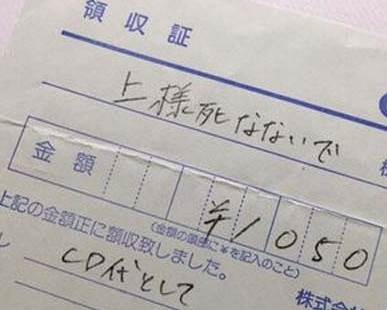 領収証
上様死なないで
金額 ¥1050
(金額の頭部に¥を記入のこと)
上記の金額正に領収致しました。
CD代として
株式会